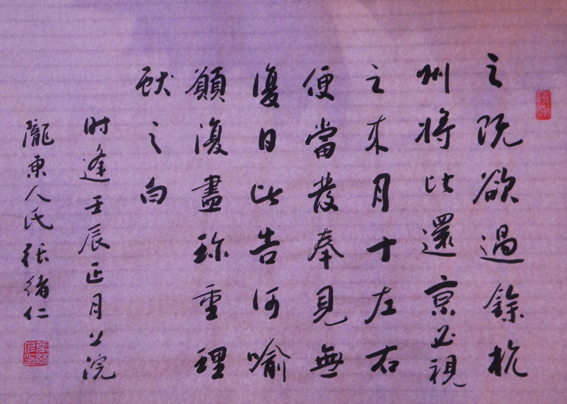 之阮欲過餘杭
州將比還京必視
之来月十左右
便當發奉見無
復日比告何喻
願復盡珍重理
獻之白
时逢壬辰正月上浣
隴東人氏張緒仁